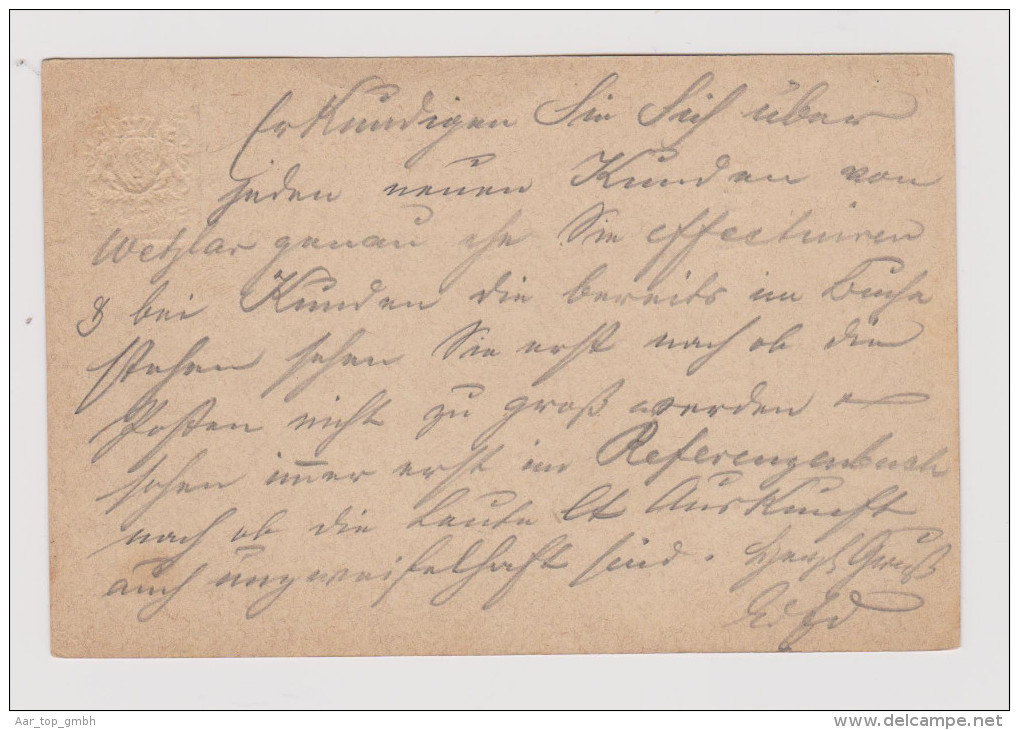 Erkundigen Sie Sich über
jeden neuen Kunden von
Wetzlar genau ehe Sie effectuiren
& bei Kunden die bereits im Buche
stehen sehen Sie erst nach ob die
Posten nicht zu groß werden
sehen im̅er erst im Referenzenbuch
nach ob die Leute lt Auskunft
auch unzweifelhaft sind. Herzl Gruß
Aar_top_gmbh
www.delcampe.net